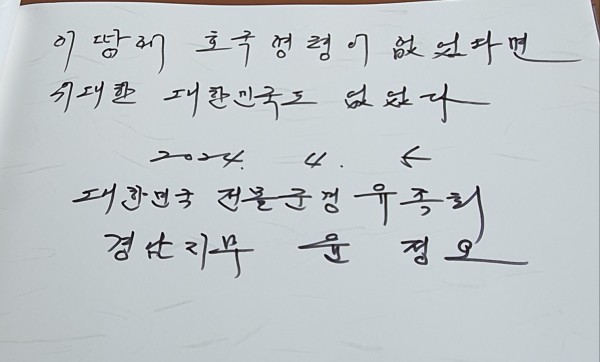 이 땅에 호국영령이 없었다면
위대한 대한민국도 없었다
2024. 4.
대한민국 전몰군경 유족회
경남지부 윤 정오